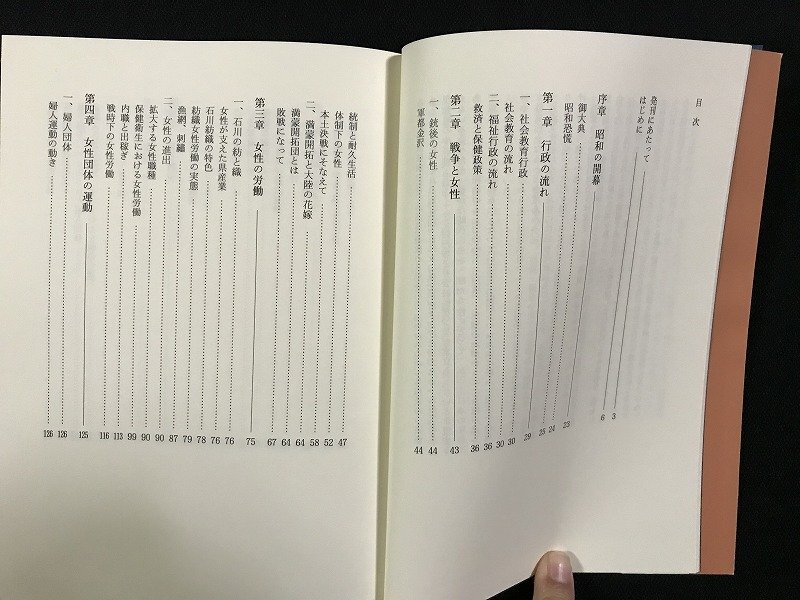 目次
発刊にあたって 3
はじめに 6
序章 昭和の開幕 23
御大典 24
昭和恐慌 25
第一章 行政の流れ 29
一、社会教育の流れ 30
社会教育行政 30
二、福祉行政の流れ 36
救済と保健政策 36
第二章 戦争と女性 43
一、銃後の女性 44
軍都金沢 44
統制と耐久生活 47
体制下の女性 52
本土決戦にそなえて 58
二、満蒙開拓と大陸の花嫁 64
満蒙開拓団とは 64
敗戦になって 67
第三章 女性の労働 75
一、石川の紡と織 76
女性が支えた県産業 76
石川紡織の特色 78
紡織女性労働の実態 79
漁網、刺繡 87
二、女性の進出 90
拡大する女性職種 90
保健衛生における女性労働 99
内職と出稼ぎ 113
戦時下の女性労働 116
第四章 女性団体の運動 125
一、婦人団体 126
婦人運動の動き 126